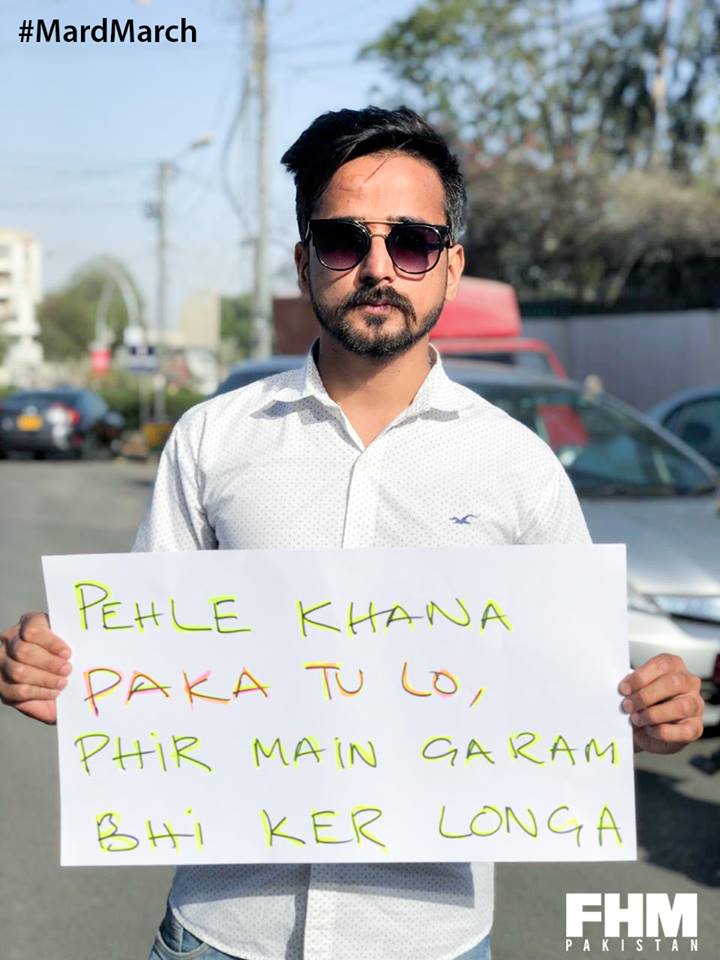 #MardMarch
PEHLE KHANA
PAKA TU LO,
PHIR MAIN GARAM
BHI KER LONGA
FHM
PAKISTAN